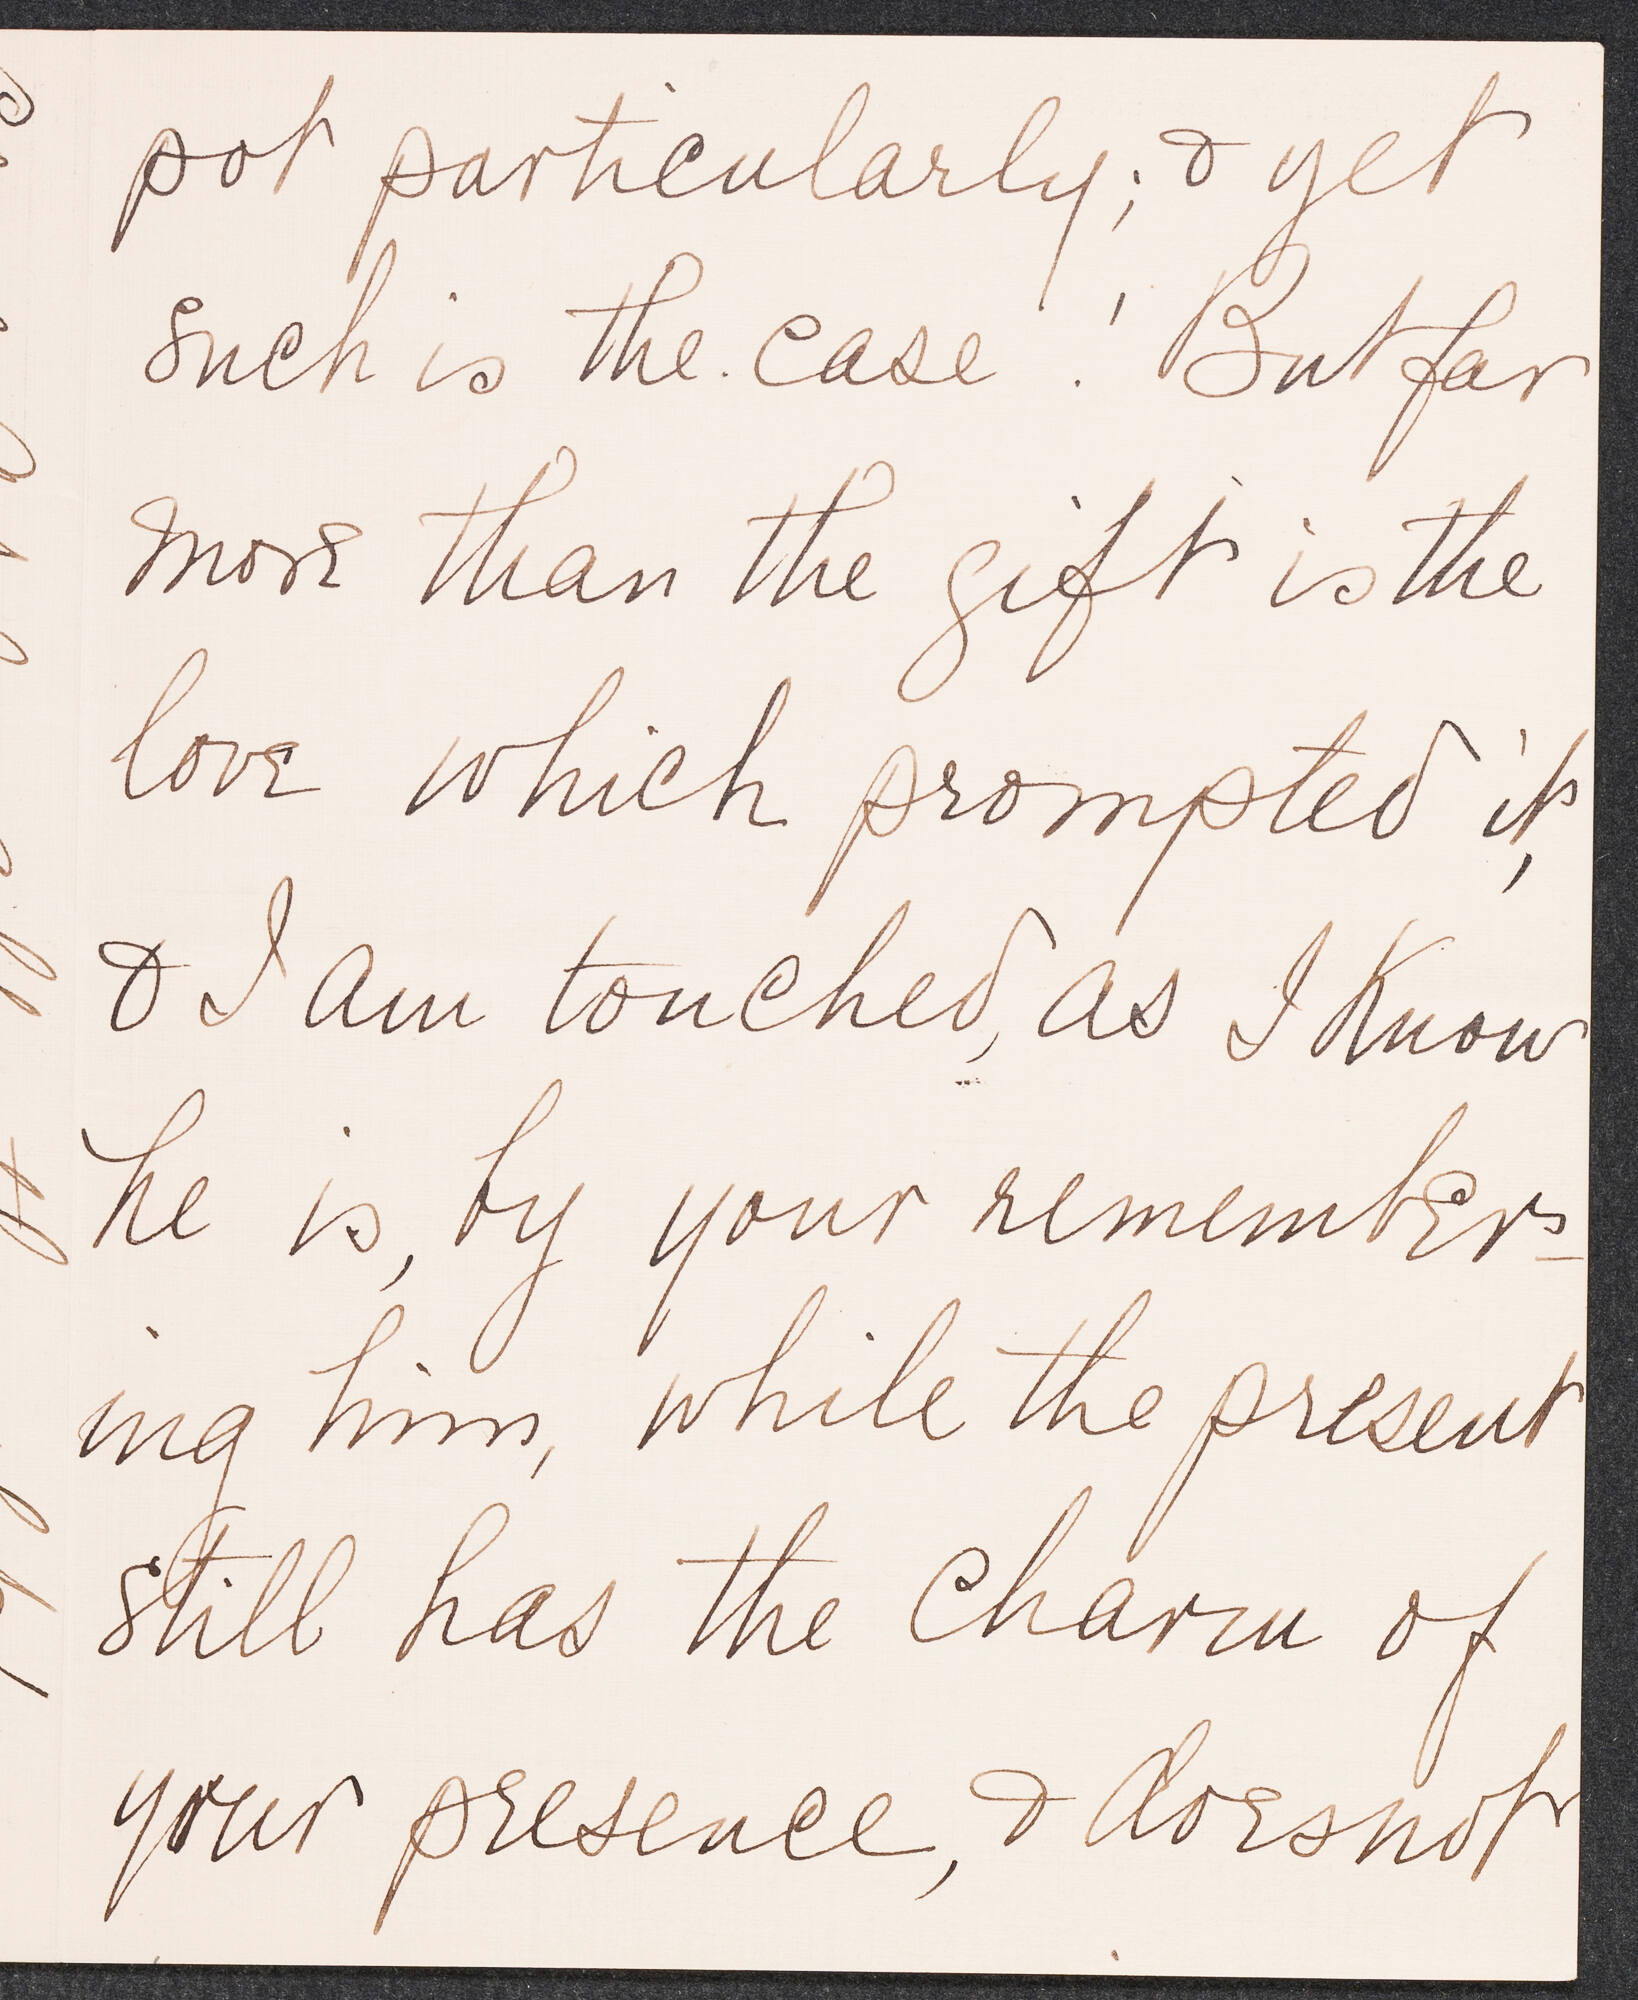 pot particularly; & yet
such is the case! But far
more than the gift is the
love which prompted it,
& I am touched, as I know
he is, by your remember-
ing him, while the present
still has the charm of
your presence, & does not